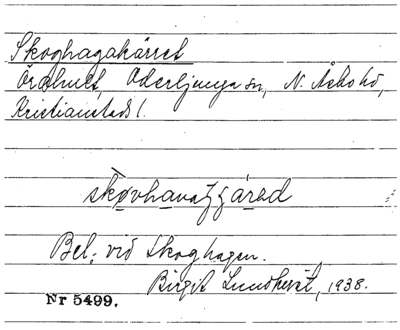 Skoghagakärret
Örahult, Oderljunga sn, N. Åsbo hd,
Kristianstads l.
Bel: vid Skoghagen.
Birgit Lundkvist, 1938.
Nr 5499.